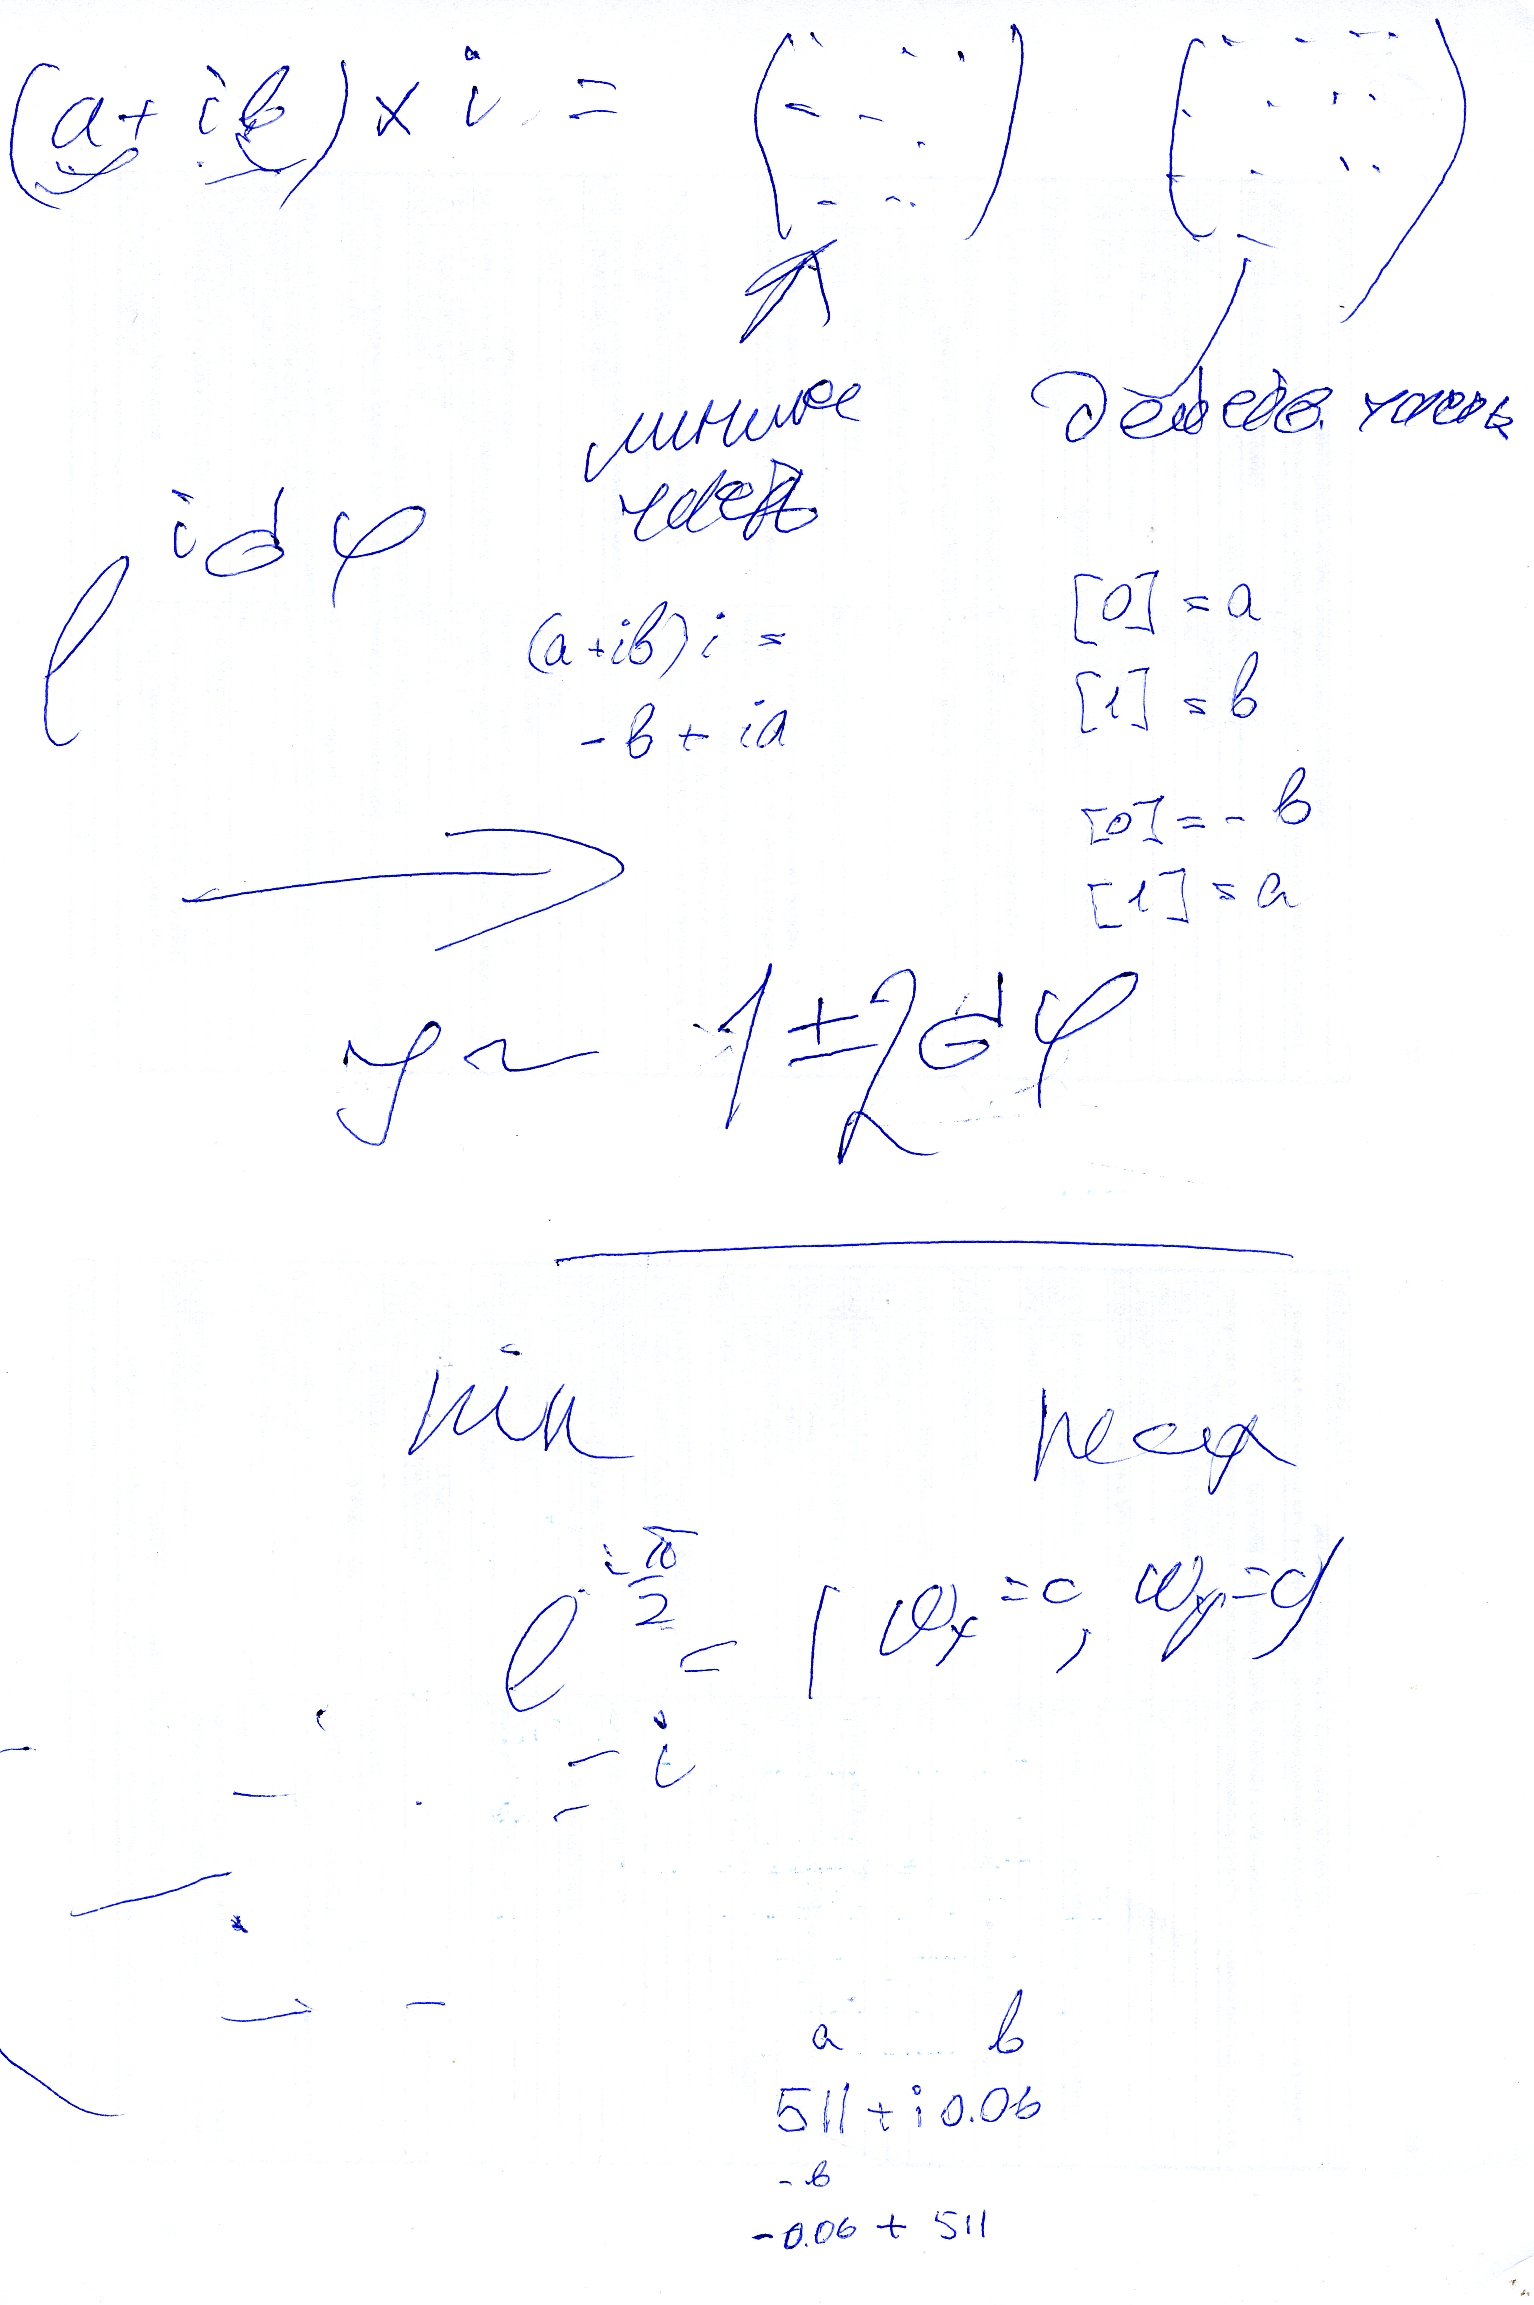 (a + ib) × i =
мнимая часть
действ. часть
e^{iαφ}
(a + ib) i =
- b + ia
[0] = a
[1] = b
[0] = - b
[1] = a
y ~ 1 ± 2αφ
min
max
e^{i π/2} =
= i
a b
511 + i 0.06
- b
-0.06 + 511